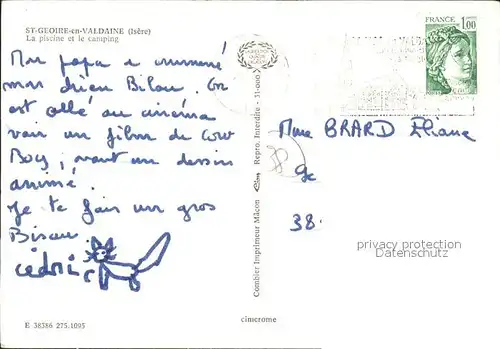 ST-GEOIRE-en-VALDAINE (Isère)
La piscine et le camping
Mon papa a ammené
mon chien Bilou. On
est allé au cinéma
voir un film de cow
Boy, avant un dessin
animé.
Je te fais un gros
Bisou.
cédric
E 38386 275.1095
cimcrome
Combier Imprimeur Mâcon
Repro. Interdite - 51-000
FRANCE
1,00
Mme BRARD Eliane
38
38.
privacy protection
Datenschutz